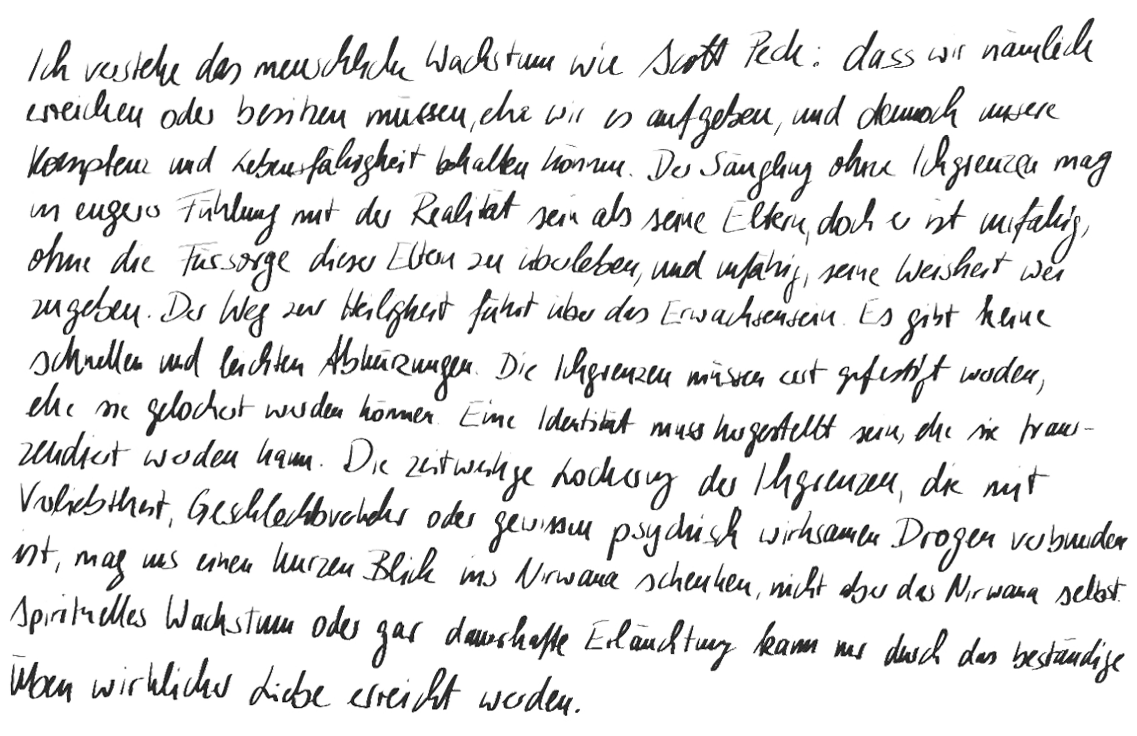 Ich verstehe das menschliche Wachstum wie Scott Peck: dass wir nämlich
erreichen oder besitzen müssen, ehe wir es aufgeben, und dennoch unsere
Kompetenz und Lebensfähigkeit behalten können. Der Säugling ohne Ichgrenzen mag
in engerer Fühlung mit der Realität sein als seine Eltern, doch er ist unfähig,
ohne die Fürsorge dieser Eltern zu überleben, und unfähig, seine Weisheit wei
zugeben. Der Weg zur Heiligkeit führt über das Erwachsensein. Es gibt keine
schnellen und leichten Abkürzungen. Die Ichgrenzen müssen erst gefestigt werden,
ehe sie gelockert werden können. Eine Identität muss hergestellt sein, ehe sie trans-
zendiert werden kann. Die zeitweilige Lockerung der Ichgrenzen, die mit
Verliebtheit, Geschlechtsverkehr oder gewissen psychisch wirksamen Drogen verbunden
ist, mag uns einen kurzen Blick ins Nirwana schenken, nicht aber das Nirwana selbst.
Spirituelles Wachstum oder gar dauerhafte Erläuchtung kann nur durch das beständige
Üben wirklicher Liebe erreicht werden.